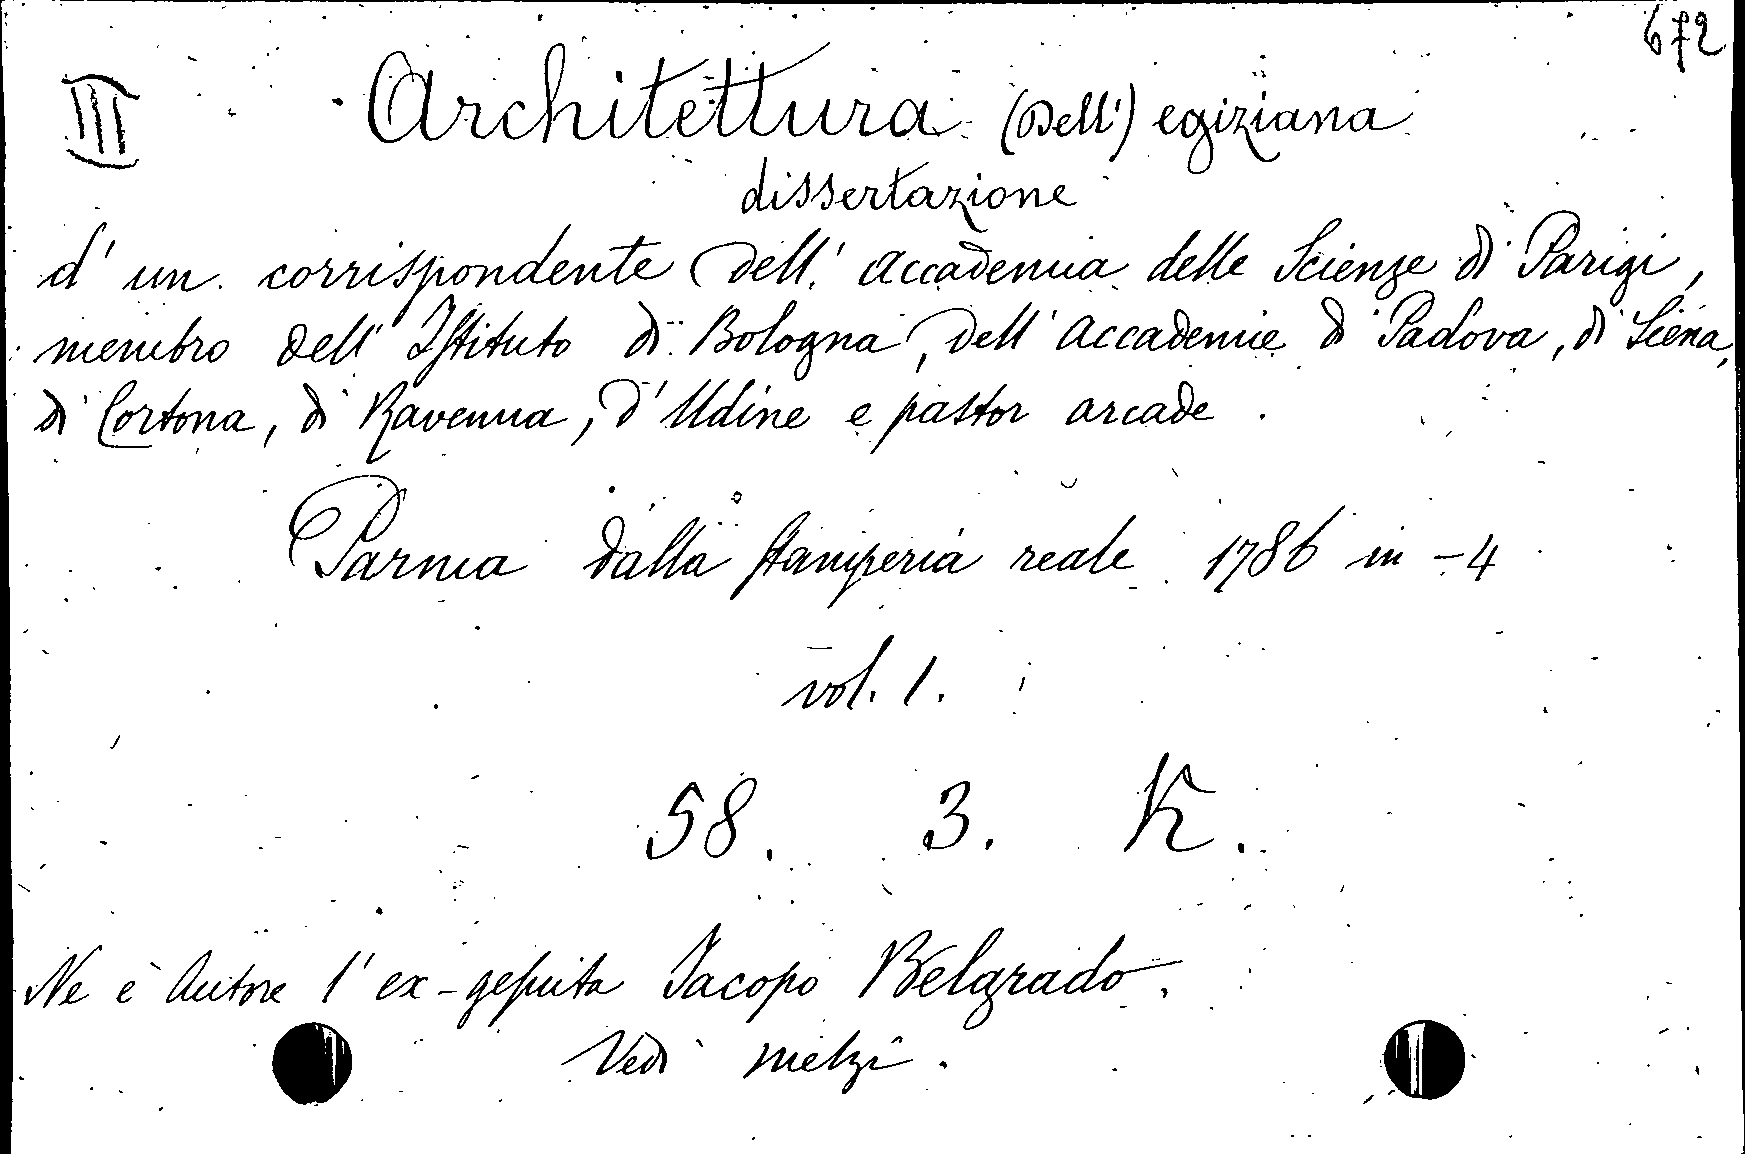 672
III
Architettura (Dell') egiziana
dissertazione
d' un corrispondente dell' Accademia delle Scienze di Parigi,
membro dell' Istituto di Bologna, dell' Accademie di Padova, di Siena,
di Cortona, di Ravenna, d' Udine e pastor arcade.
Parma dalla stamperia reale 1786 in -4
vol. 1.
58. 3. K.
Ne è Autore l' ex-gesuita Jacopo Belgrado.
Vedi Melzi.